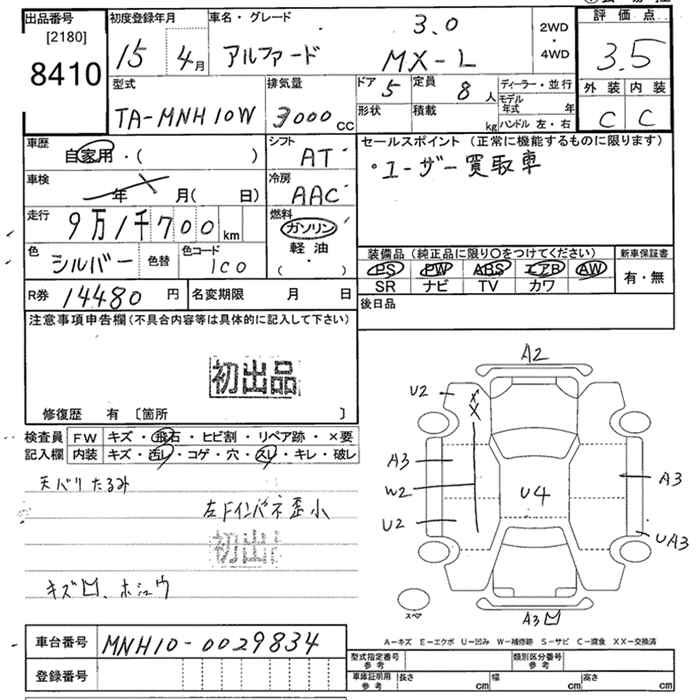 出品番号
[2180]
8410
初度登録年月
15年4月
車名・グレード
アルファード
3.0
MX-L
2WD
・
4WD
評価点
3.5
外装 内装
C C
型式
TA-MNH10W
排気量
3000cc
ドア 5
定員 8人
形状
積載 kg
ディーラー・並行
モデル年式 年
ハンドル 左・右
車歴
自家用・( )
シフト
AT
セールスポイント (正常に機能するものに限ります)
・ユーザー買取車
車検
年 月( 日)
冷房
AAC
走行
9万1千700km
燃料
ガソリン
軽油
( ・ )
色
シルバー
色替
色コード
1C0
装備品 (純正品に限り○をつけてください)
PS PW ABS エアB AW
SR ナビ TV カワ
新車保証書
有・無
R券 14480円
名変期限 月 日
後日品
注意事項申告欄(不具合内容等は具体的に記入して下さい)
初出品
修復歴 有 〔箇所 〕
検査員
記入欄
FW キズ・飛石・ヒビ割・リペア跡・×要
内装 キズ・汚レ・コゲ・穴・スレ・キレ・破レ
天バリたるみ
左Fインパネ歪小
初出
キズ凹、ホシュウ
A2
U2
X
X
A3
W2
U2
U4
A3
UA3
スペア
A3凹
A-キズ E-エクボ U-凹み W-補修跡 S-サビ C-腐食 XX-交換済
車台番号 MNH10-0029834
登録番号
型式指定番号
参考
類別区分番号
参考
車庫証明用
参考
長さ cm
幅 cm
高さ cm